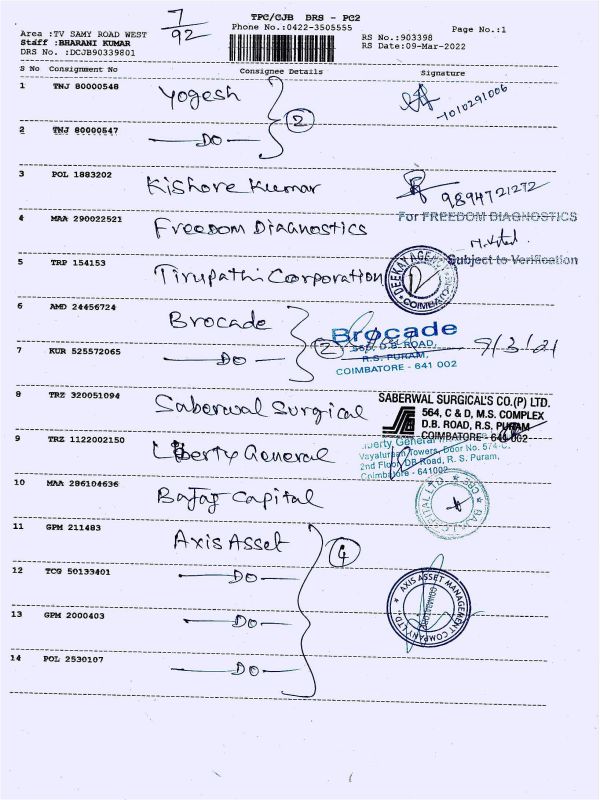 7/92
TPC/CJB DRS - PC2
Phone No.:0422-3505555
Page No.:1
Area :TV SAMY ROAD WEST
Staff :BHARANI KUMAR
DRS No. :DCJB90339801
RS No.:903398
RS Date:09-Mar-2022
S No Consignment No Consignee Details Signature
1 TNJ 80000548 Yogesh 2 7010291006
2 TNJ 80000547 DO
3 POL 1883202 Kishore Kumar 9894721272
4 MAA 290022521 Freedom Diagnostics
For FREEDOM DIAGNOSTICS
Subject to Verification
5 TRP 154153 Tirupathi Coorporation
DEEKAY AGEN
COIMBATORE
6 AMD 24456724 Brocade
2
Brocade
D.B. ROAD,
R.S. PURAM,
COIMBATORE - 641 002
7 KUR 525572065 DO
8 TRZ 320051094 Saberwal Surgical
SABERWAL SURGICAL'S CO.(P) LTD.
564, C & D, M.S. COMPLEX
D.B. ROAD, R.S. PURAM
COIMBATORE - 641 002
9 TRZ 1122002150 Liberty General
Liberty General
Vayaluraan Towers, Door No. 574-C,
2nd Floor, DB Road, R. S. Puram,
Coimbatore - 641002
10 MAA 286104636 Bajaj Capital
BAJAJ CAPITAL LTD. CBE
11 GPM 211483 Axis Asset 4
12 TCG 50133401 DO
AXIS ASSET MANAGEMENT COMPANY LTD.
COIMBATORE
13 GPM 2000403 DO
14 POL 2530107 DO